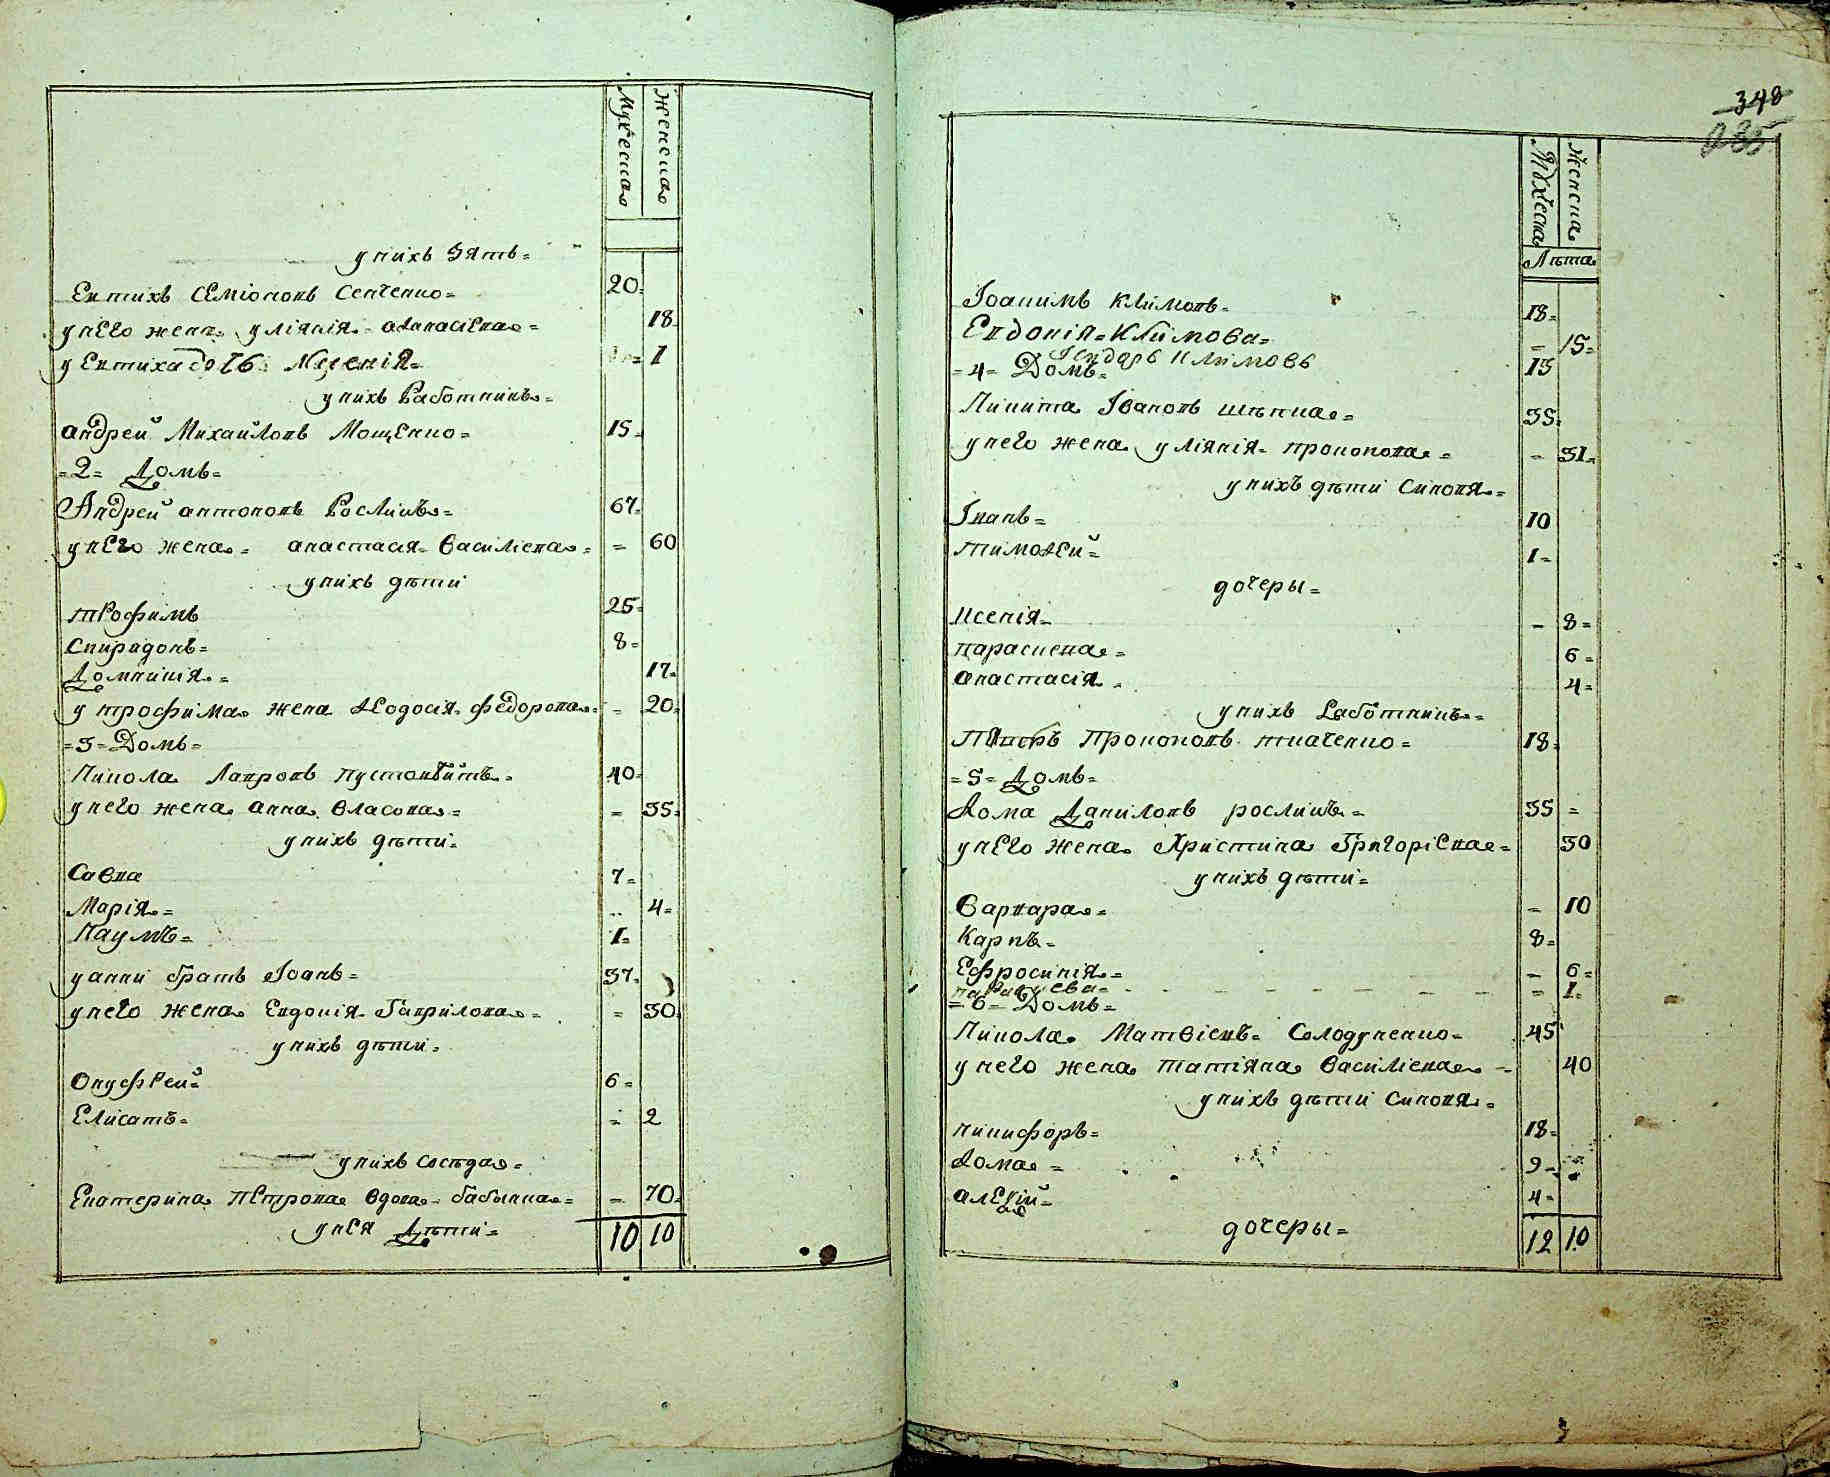 Мужеска
Женска
у нихъ зять=
Евтихъ Семіоновъ Сенченко= 20.
у него жена= уліянія= аѳанасіевна= 18.
у Евтиха дочь Ксенія= 1
у нихъ работникъ=
андрей Михайловъ Мощенко= 15.
=2= Домъ=
Андрей антоновъ Росликъ= 67.
у него жена= анастасія= василіевна= = 60
у нихъ дѣти
трофимъ 25.
спиридонъ= 8=
Домникія= 17.
у трофима жена ѳеодосія федорова= - 20.
=3= Домъ=
Никола Лавровъ пустовитъ= 40=
у него жена анна власова= = 35.
у нихъ дѣти=
Савва 7=
Марія= 4=
Наумъ= 1=
у анни братъ Іоанъ= 37.
у него жена Евдокія Гаврилова= = 30.
у нихъ дѣти=
Онуфрей= 6=
Елисатъ= = 2
у нихъ сосѣда=
Екатерина Петрова вдова= бабичка= - 70.
у нея Дѣти= 10 10
348
235
Мужеска
Женска
Лѣта
Іоакимъ климовъ= 18=
Евдокія=климова= - 15=
Ісидоръ климовъ
=4= Домъ= 15
Никита Івановъ шѣпка= 35.
у него жена уліянія= прокопова= - 31.
у нихъ дѣти синовя=
Іванъ= 10
тимоѳей= 1=
дочеры=
ксенія= - 8=
парасковя= 6=
анастасія= 4=
у нихъ работникъ=
Прокоповъ ткаченко= 18.
=5= Домъ=
ѳома Даниловъ росликъ= 35 =
у него жена Христина Григоріевна= 30
у нихъ дѣти=
варвара= - 10
карпъ= 8=
Ефросинія= - 6=
- 1.
=6= Домъ=
Никола Матвіевъ Солодченко= 45
у него жена татіяна василіевна= 40
у нихъ дѣти синовя=
никифоръ= 18=
ѳома= 9=
алеѯій= 4=
дочеры= 12 10